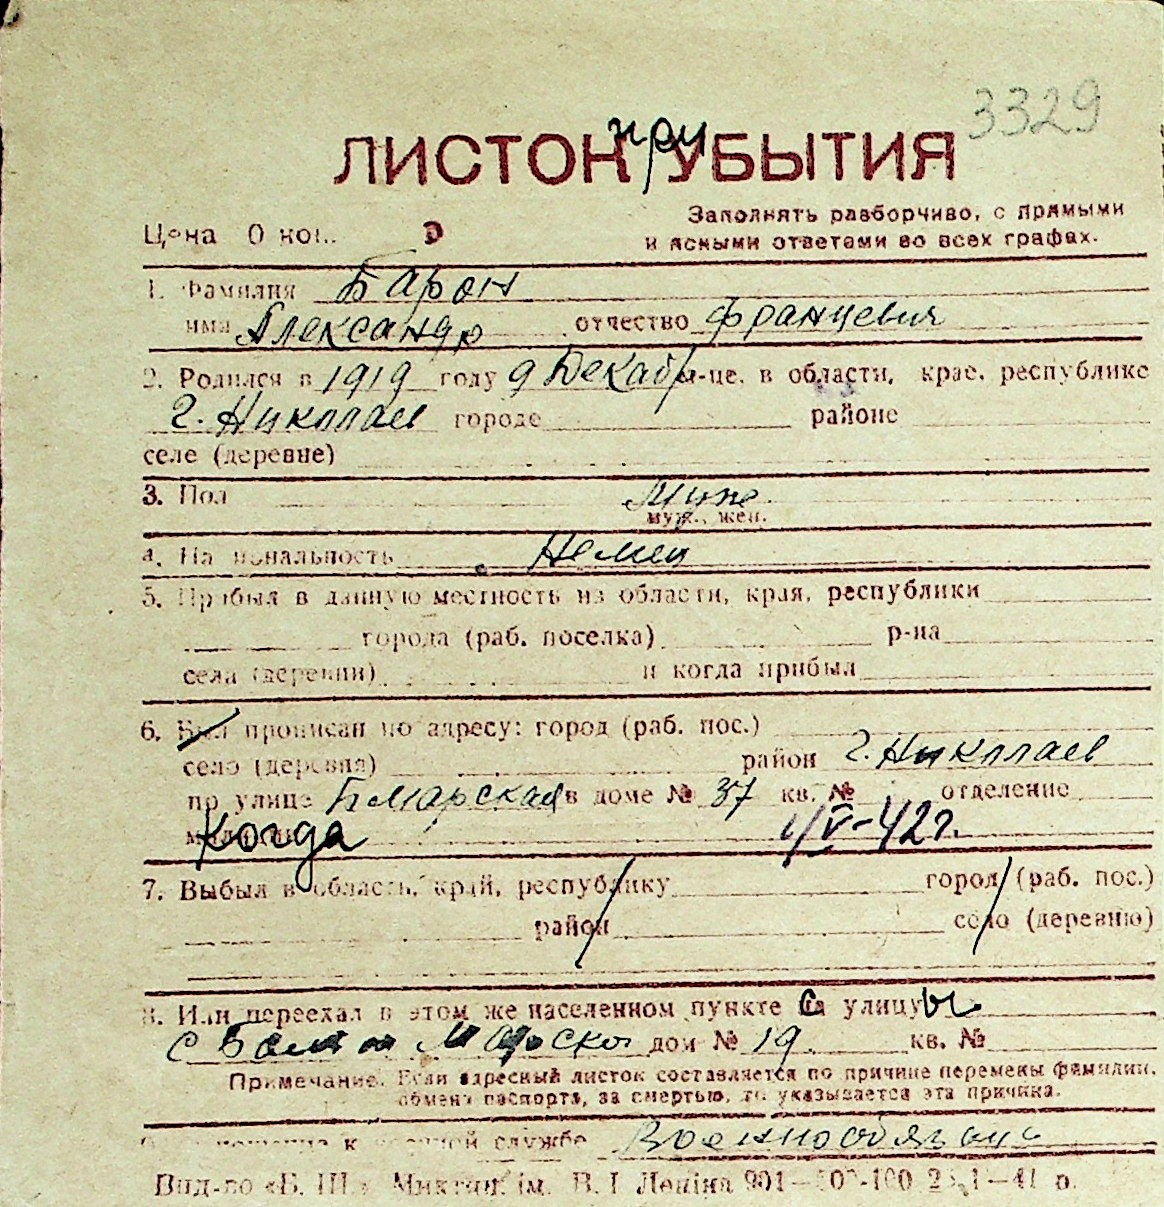 3329
ЛИСТОК при УБЫТИЯ
Заполнять разборчиво, с прямыми
и ясными ответами во всех графах.
Цена 0 коп.
1. Фамилия Барон
имя Александр отчество Францевич
2. Родился в 1919 году 9 Декабр м-це, в области, крае, республике
г. Николаев городе районе
селе (деревне)
3. Пол Муж.
муж., жен.
4. Национальность Немец
5. Прибыл в данную местность из области, края, республики
города (раб. поселка) р-на
села (деревни) и когда прибыл
6. Был прописан по адресу: город (раб. пос.)
село (деревня) район г. Николаев
по улице Б Марская в доме № 37 кв. № отделение
милиции Когда 1/V-42г.
7. Выбыл в область, край, республику город (раб. пос.)
район село (деревню)
8. Или переехал в этом же населенном пункте с улицы
с дом № 19 кв. №
Примечание. Если адресный листок составляется по причине перемены фамилии,
обмена паспорта, за смертью, то указывается эта причина.
9. Отношение к военной службе Военнообязан
Вид-во «Б. Ш.» Миктип. ім. В. І Леніна 901